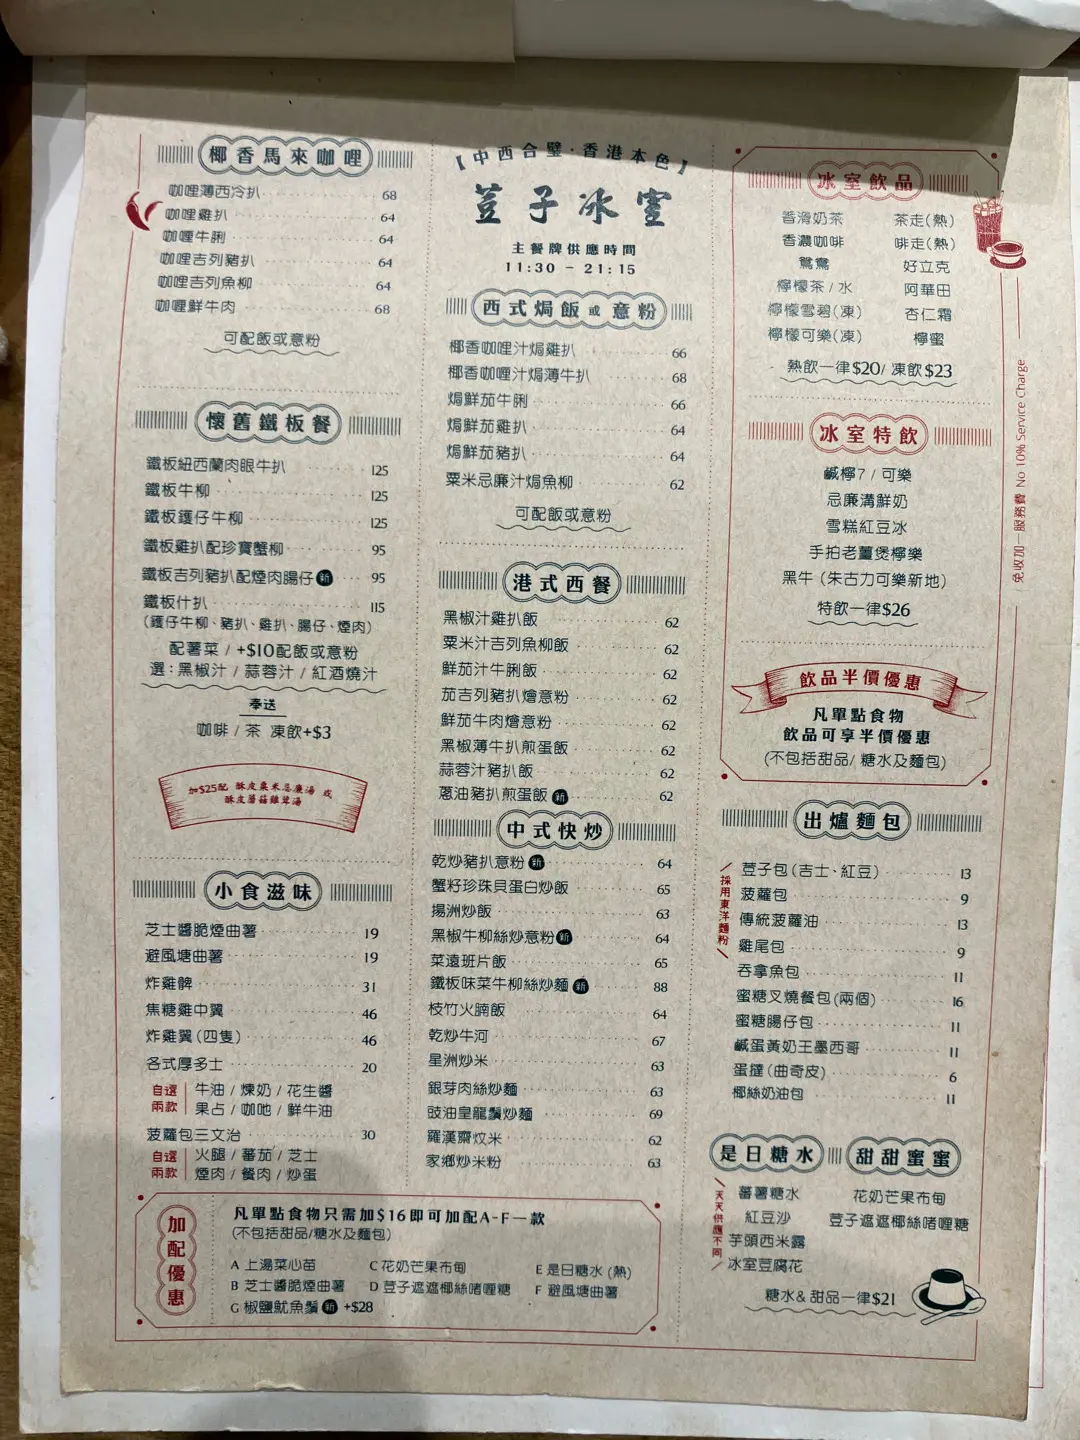 椰香馬來咖哩
咖哩薄西冷扒 68
咖哩雞扒 64
咖喱牛脷 64
咖哩吉列豬扒 64
咖哩吉列魚柳 64
咖喱鮮牛肉 68
可配飯或意粉
懷舊鐵板餐
鐵板紐西蘭肉眼牛扒 125
鐵板牛柳 125
鐵板鑊仔牛柳 125
鐵板雞扒配珍寶蟹柳 95
鐵板吉列豬扒配煙肉腸仔 新 95
鐵板什扒 115
(鑊仔牛柳、豬扒、雞扒、腸仔、煙肉)
配薯菜 / +$10配飯或意粉
選:黑椒汁 / 蒜蓉汁 / 紅酒燒汁
奉送
咖啡 / 茶 凍飲+$3
加$25配 酥皮粟米忌廉湯 或
酥皮蘑菇雞茸湯
小食滋味
芝士醬脆煙曲薯 19
避風塘曲薯 19
炸雞髀 31
焦糖雞中翼 46
炸雞翼(四隻) 46
各式厚多士 20
自選兩款
牛油 / 煉奶 / 花生醬
果占 / 咖吔 / 鮮牛油
菠蘿包三文治 30
自選兩款
火腿 / 蕃茄 / 芝士
煙肉 / 餐肉 / 炒蛋
【中西合璧·香港本色】
荳子冰室
主餐牌供應時間
11:30 - 21:15
西式焗飯或意粉
椰香咖哩汁焗雞扒 66
椰香咖喱汁焗薄牛扒 68
焗鮮茄牛脷 66
焗鮮茄雞扒 64
焗鮮茄豬扒 64
粟米忌廉汁焗魚柳 62
可配飯或意粉
港式西餐
黑椒汁雞扒飯 62
粟米汁吉列魚柳飯 62
鮮茄汁牛脷飯 62
茄吉列豬扒燴意粉 62
鮮茄牛肉燴意粉 62
黑椒薄牛扒煎蛋飯 62
蒜蓉汁豬扒飯 62
蔥油豬扒煎蛋飯 新 62
中式快炒
乾炒豬扒意粉 新 64
蟹籽珍珠貝蛋白炒飯 65
揚洲炒飯 63
黑椒牛柳絲炒意粉 新 64
菜遠班片飯 65
鐵板味菜牛柳絲炒麵 新 88
枝竹火腩飯 64
乾炒牛河 67
星洲炒米 63
銀芽肉絲炒麵 63
豉油皇龍鬚炒麵 69
羅漢齋炆米 62
家鄉炒米粉 63
冰室飲品
香滑奶茶 茶走(熱)
香濃咖啡 啡走(熱)
鴛鴦 好立克
檸檬茶 / 水 阿華田
檸檬雪碧(凍) 杏仁霜
檸檬可樂(凍) 檸蜜
熱飲一律$20/ 凍飲$23
冰室特飲
鹹檸7 / 可樂
忌廉溝鮮奶
雪糕紅豆冰
手拍老薑煲檸樂
黑牛 (朱古力可樂新地)
特飲一律$26
飲品半價優惠
凡單點食物
飲品可享半價優惠
(不包括甜品/ 糖水及麵包)
出爐麵包
採用東洋麵粉
荳子包(吉士、紅豆) 13
菠蘿包 9
傳統菠蘿油 13
雞尾包 9
吞拿魚包 11
蜜糖叉燒餐包(兩個) 16
蜜糖腸仔包 11
鹹蛋黃奶王墨西哥 11
蛋撻(曲奇皮) 6
椰絲奶油包 11
是日糖水
天天供應不同
蕃薯糖水
紅豆沙
芋頭西米露
冰室豆腐花
甜甜蜜蜜
花奶芒果布甸
荳子遮遮椰絲啫喱糖
糖水&甜品一律$21
免收加一服務費 No 10% Service Charge
加配優惠
凡單點食物只需加$16即可加配A-F一款
(不包括甜品/糖水及麵包)
A 上湯菜心苗 C 花奶芒果布甸 E 是日糖水 (熱)
B 芝士醬脆煙曲薯 D 荳子遮遮椰絲啫喱糖 F 避風塘曲薯
G 椒鹽魷魚鬚 新 +$28